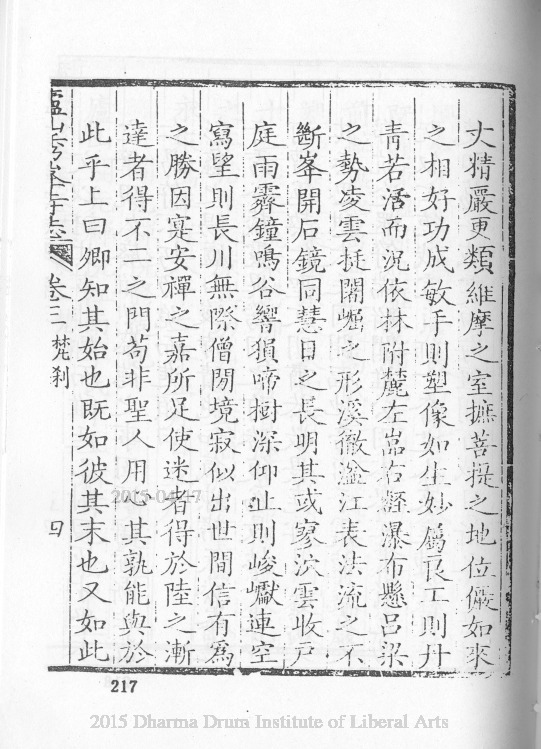 大精嚴更類維摩之室摭菩提之地位儼如來
之相好功成敏手則塑像如生妙屬良工則丹
青若活而況依林附麓左嵓右壑瀑布懸呂梁
之勢凌雲挺闕崛之形溪徹湓江表法流之不
斷峯開石鏡同慧日之長明其或寥泬雲收戶
庭雨霽鐘鳴谷響猿啼樹深仰止則峻巘連空
寫望則長川無際僧閒境寂似出世間信有為
之勝因寔安禪之嘉所足使迷者得於陸之漸
達者得不二之門苟非聖人用心其孰能與於
此乎上曰卿知其始也既如彼其末也又如此
卷三 梵刹 四
217
2015-04-17
2015 Dharma Drum Institute of Liberal Arts